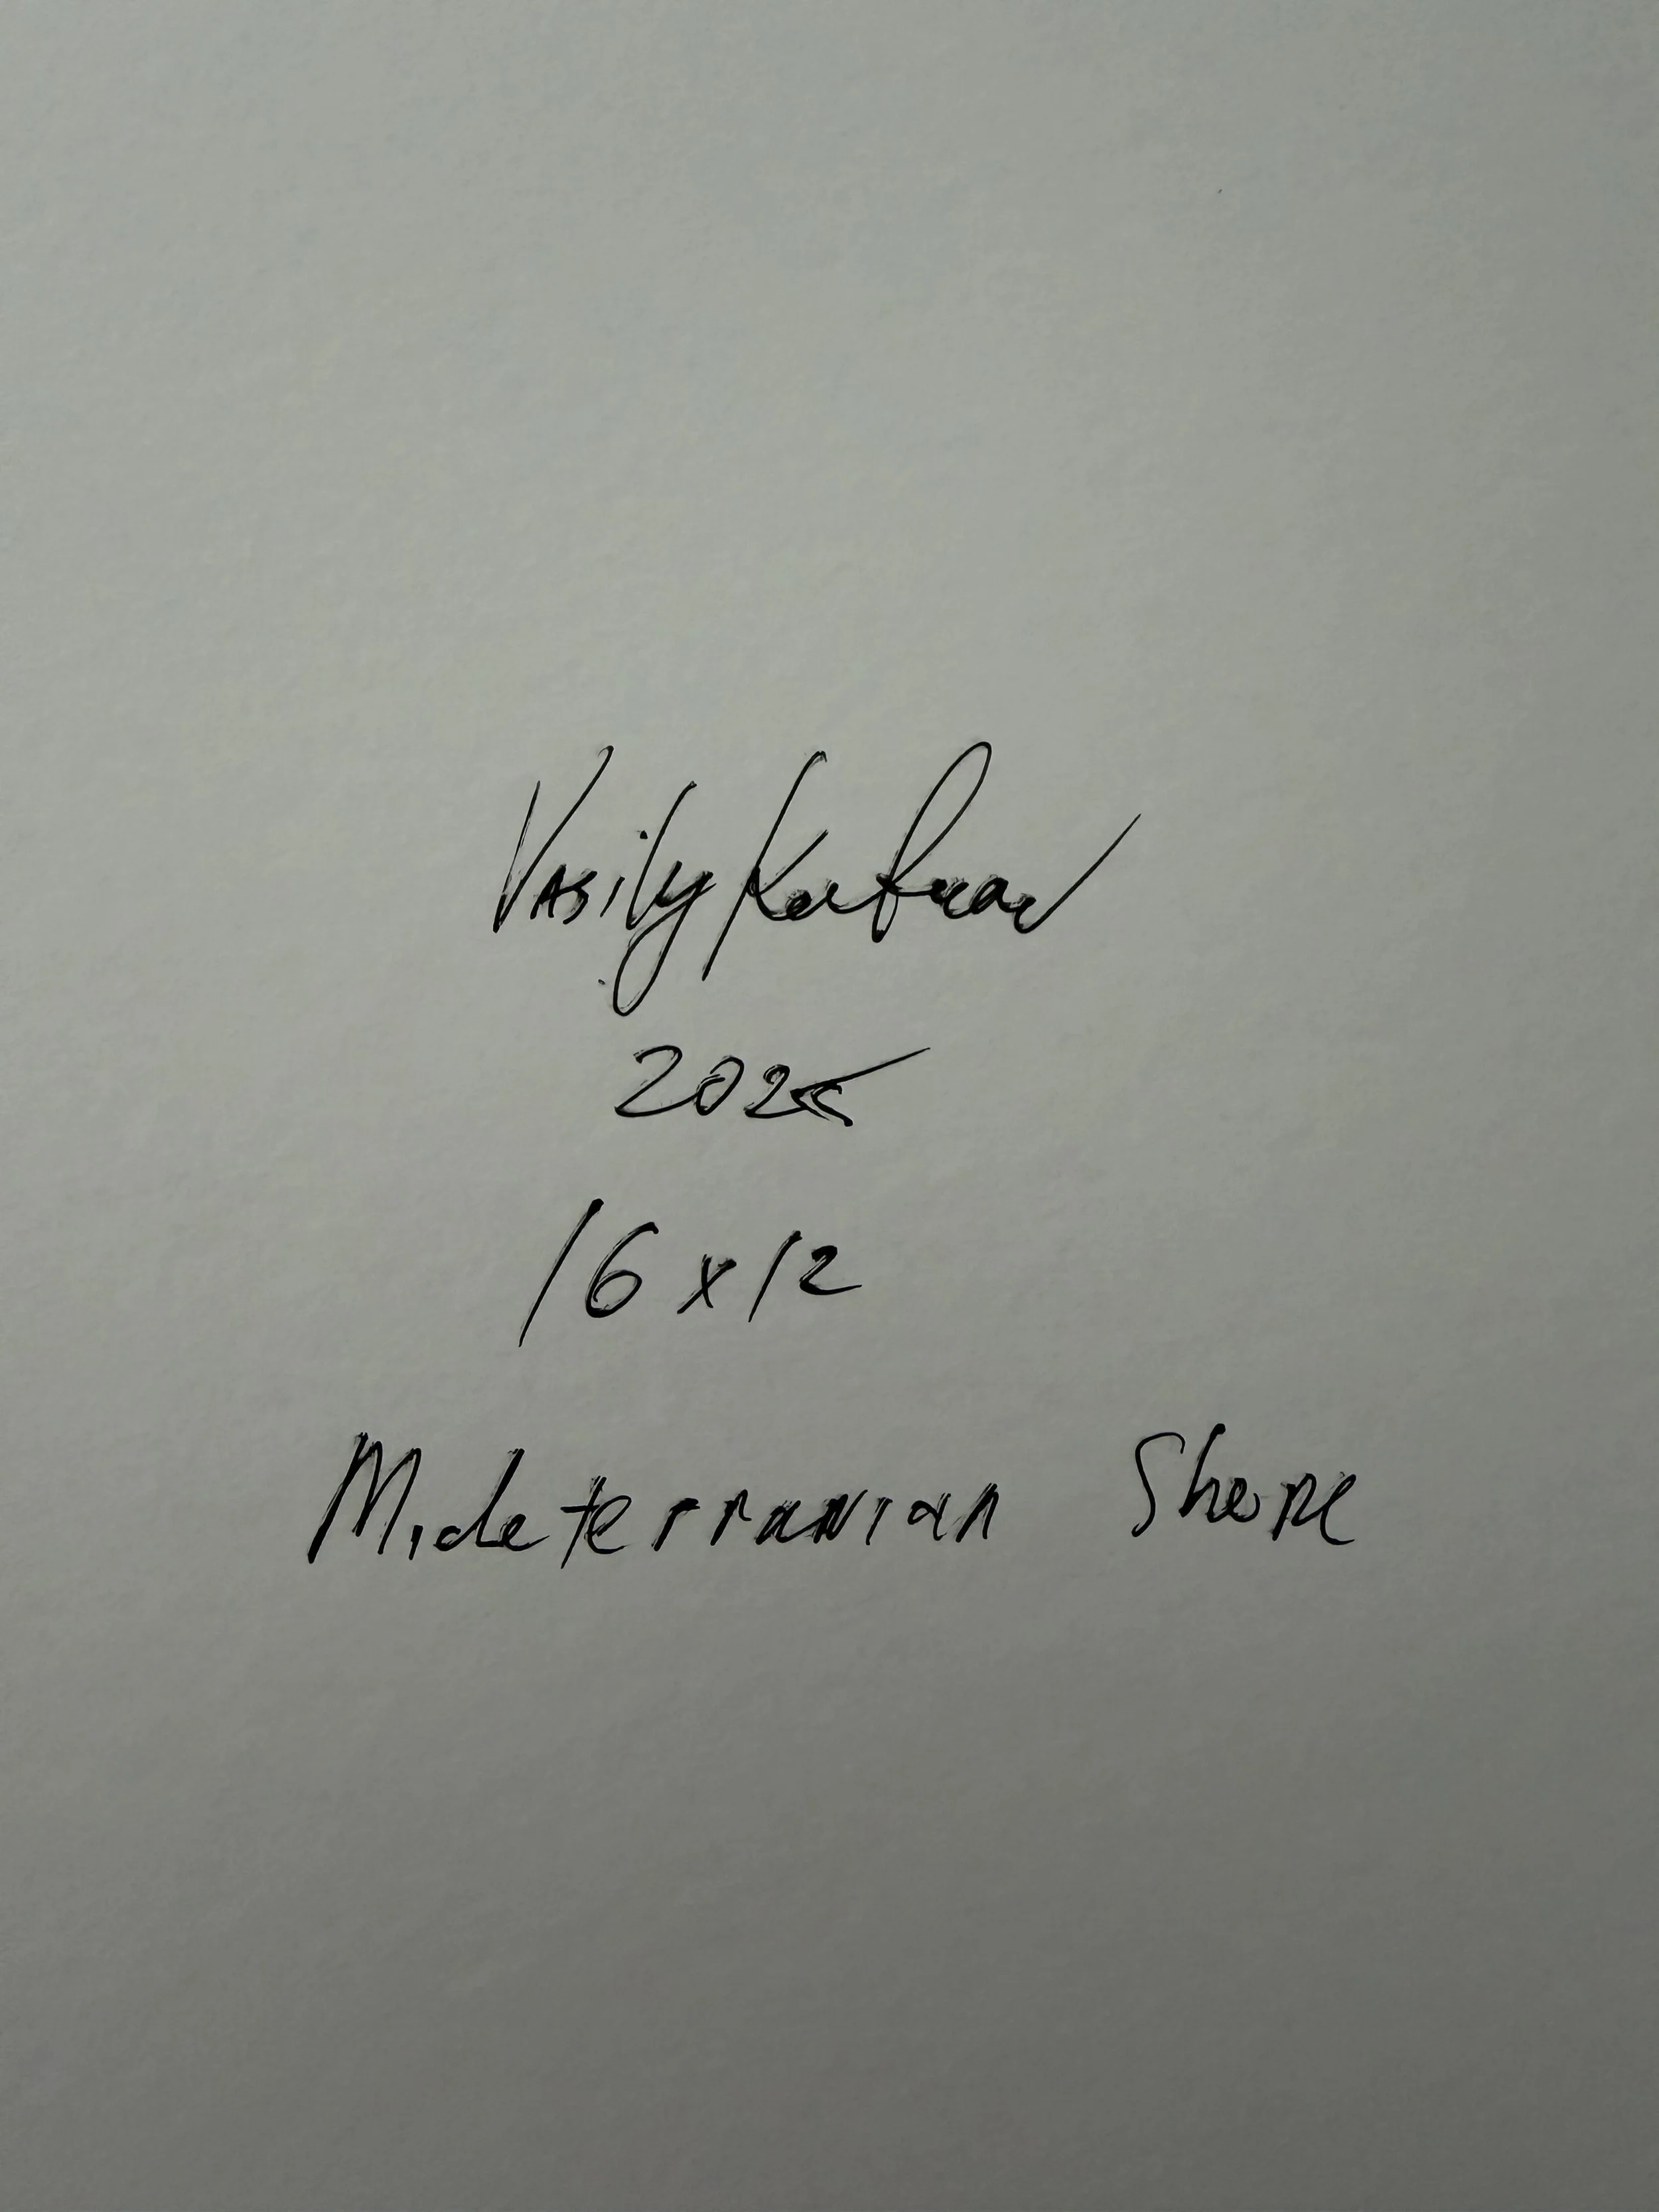 Vasily
2025
16 x 12
Mideterranian Shore